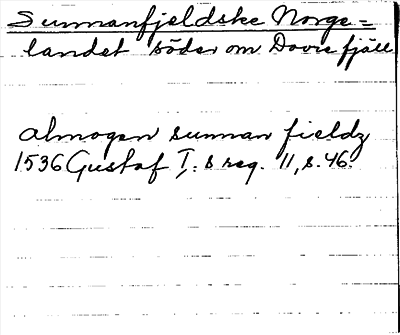 Sunnanfjeldske Norge =
landet söder om Dovre fjäll
almogen sunnan fieldz
1536 Gustaf I:s reg. 11, s. 46.